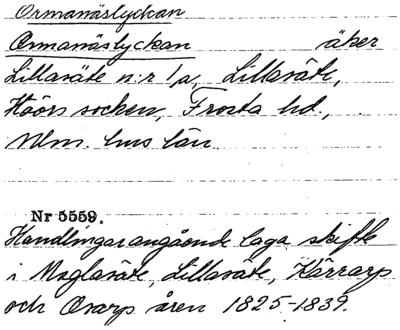 Ormanäslyckan
Ormanäslyckan åker
Lillaräte n:r 1/a, Lillaräte,
Höörs socken, Frosta hd.,
Mlm. hus län
Nr 5559.
Handlingar angående laga skifte
i Maglaräte, Lillaräte, Kärrarp
och Orarp åren 1825-1839.